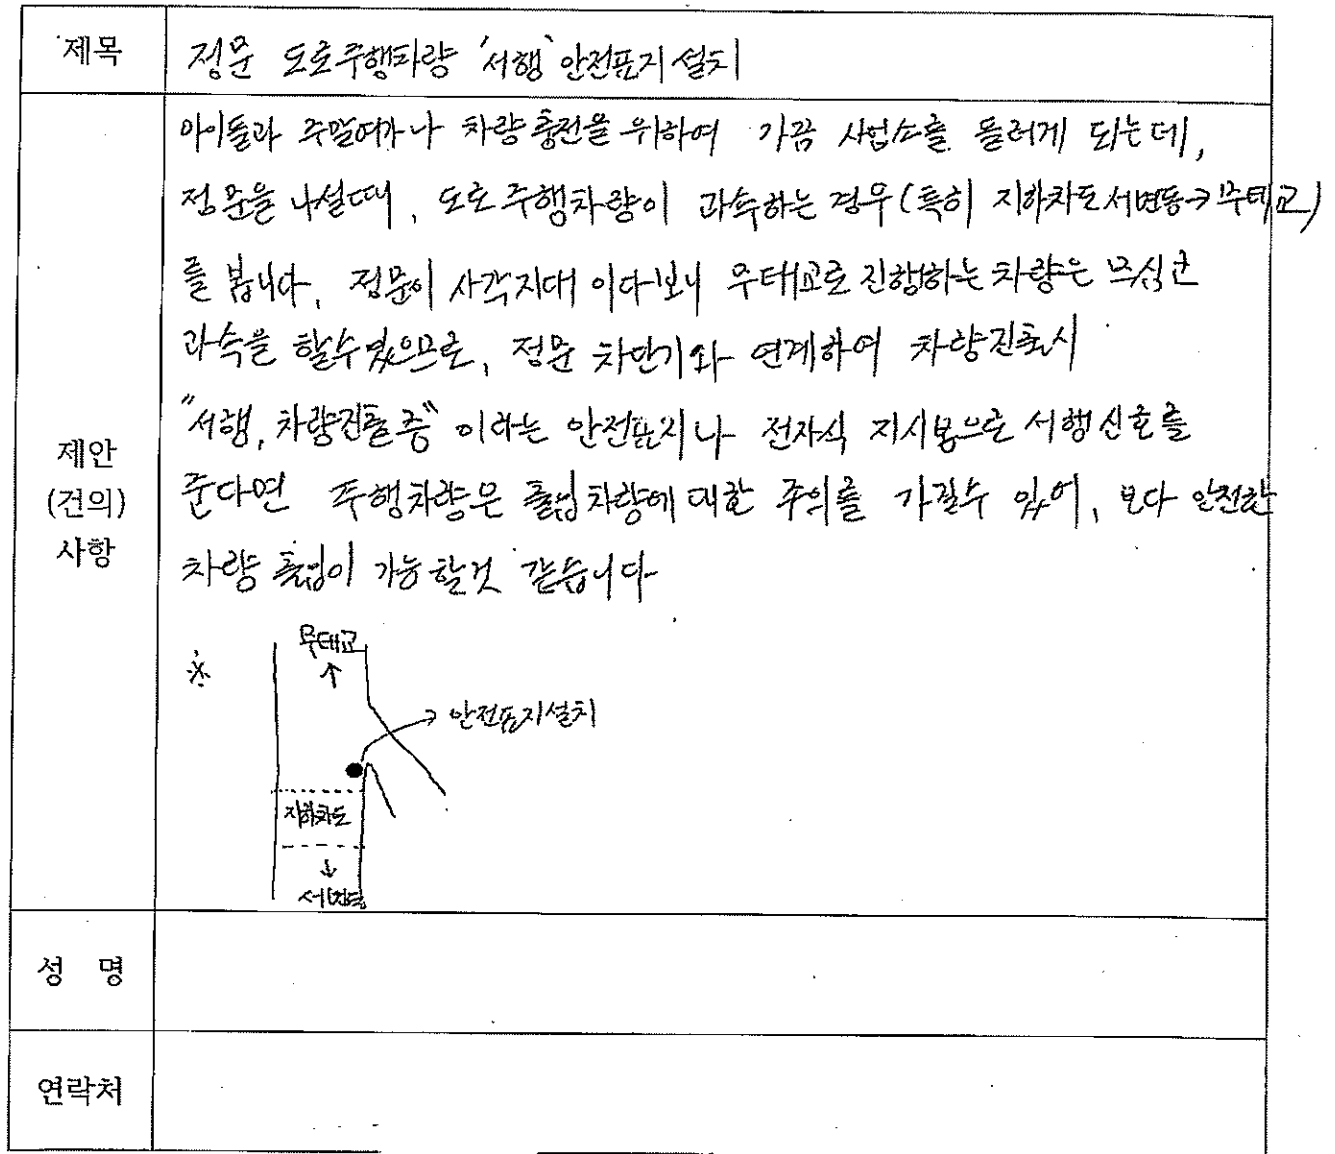 제목
정문 도로주행차량 '서행' 안전표지 설치
아이들과 주말여가나 차량충전을 위하여 가끔 사업소를 들러게 되는데,
정문을 나설때, 도로주행차량이 과속하는 경우(특히 지하차도서변동→무태교)
를 봅니다. 정문이 사각지대 이다보니 무태교로 진행하는 차량은 무심코
과속을 할수 있으므로, 정문 차단기와 연계하여 차량진출시
"서행, 차량진출중" 이라는 안전표지나 전자식 지시봉으로 서행신호를
준다면 주행차량은 출입차량에 대한 주의를 가질수 있어, 보다 안전한
차량 출입이 가능할것 같습니다
제안
(건의)
사항
※
무태교
↑
→ 안전표지설치
지하차도
↓
서변동
성 명
연락처